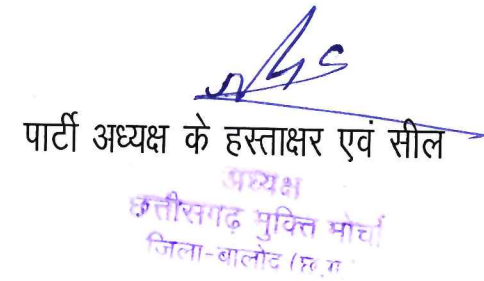 पार्टी अध्यक्ष के हस्ताक्षर एवं सील
अध्यक्ष
छत्तीसगढ़ मुक्ति मोर्चा
जिला-बालोद (छ.ग.